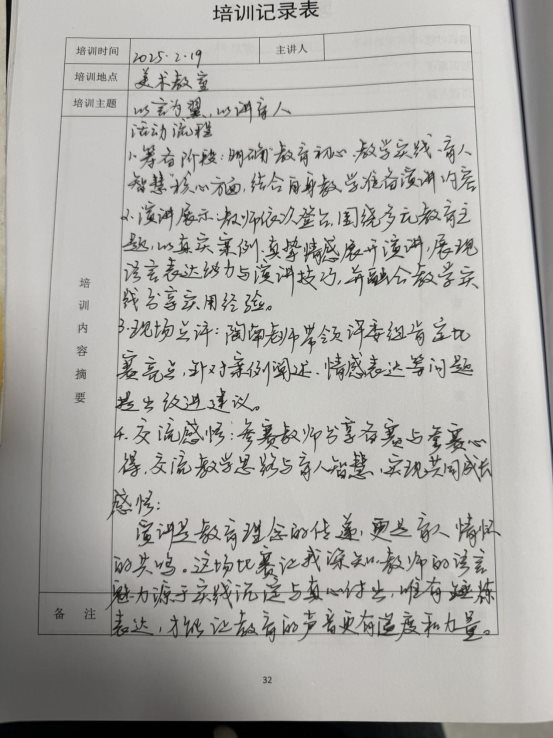 培训记录表
培训时间 2025.2.19 主讲人
培训地点 美术教室
培训主题 以言为翼,以讲育人
培训内容摘要
活动流程
1.筹备阶段:明确“教育初心、教学实践、育人
智慧”核心方面,结合自身教学准备演讲内容
2.演讲展示:教师依次登台,围绕多元教育主
题,以真实案例、真挚情感展开演讲,展现
语言表达能力与演讲技巧,并融合教学实
践分享实用经验。
3.现场点评:陶老师带领评委组肯定比
赛亮点,针对案例阐述、情感表达等问题
提出改进建议。
4.交流感悟:参赛教师分享备赛与参赛心
得,交流教学思路与育人智慧,实现共同成长
感悟:
演讲是教育理念的传递,更是育人情怀
的共鸣。这场比赛让我深知:教师的语言
魅力源于实践沉淀与真心付出,唯有锤炼
备注
表达,才能让教育的声音更有温度和力量。
32